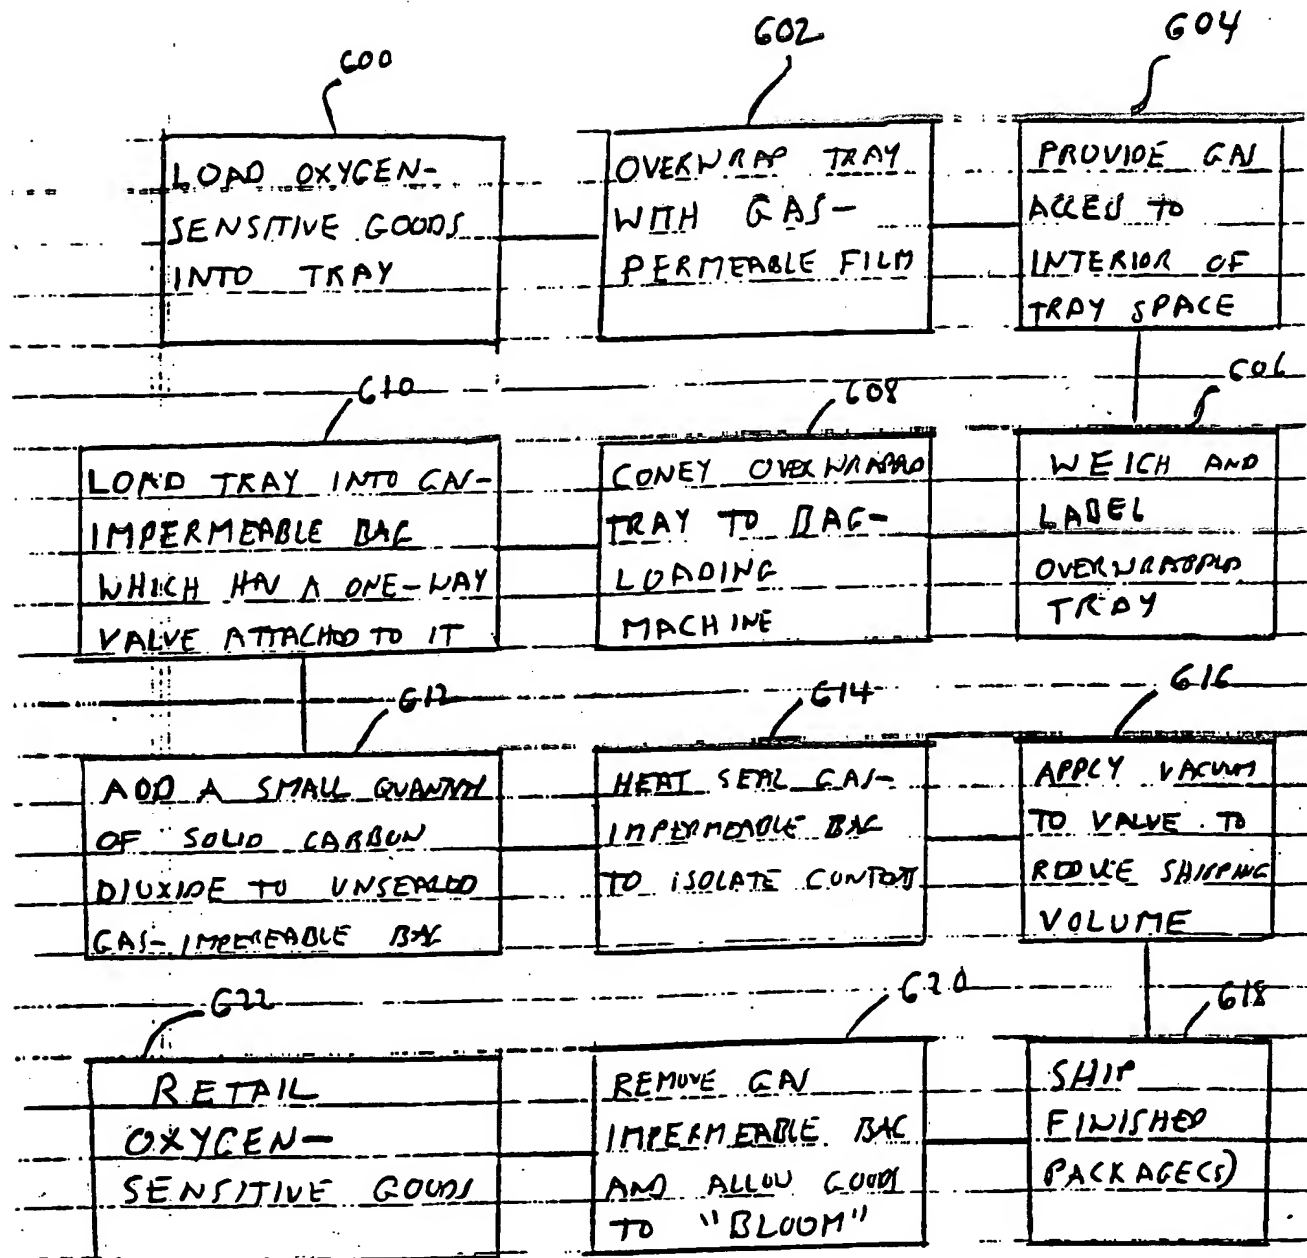 600
602
604
LOAD OXYGEN-
SENSITIVE GOODS
INTO TRAY
OVERWRAP TRAY
WITH GAS-
PERMEABLE FILM
PROVIDE GAS
ACCESS TO
INTERIOR OF
TRAY SPACE
610
608
606
LOAD TRAY INTO GAS-
IMPERMEABLE BAG
WHICH HAS A ONE-WAY
VALVE ATTACHED TO IT
CONEY OVERWRAPPED
TRAY TO BAG-
LOADING
MACHINE
WEIGH AND
LABEL
OVERWRAPPED
TRAY
612
614
616
ADD A SMALL QUANTITY
OF SOLID CARBON
DIOXIDE TO UNSEALED
GAS-IMPEREABLE BAG
HEAT SEAL GAS-
IMPERMEABLE BAG
TO ISOLATE CONTENTS
APPLY VACUUM
TO VALVE TO
REDUCE SHIPPING
VOLUME
622
620
618
RETAIL
OXYGEN-
SENSITIVE GOODS
REMOVE GAS
IMPERMEABLE BAG
AND ALLOW GOODS
TO "BLOOM"
SHIP
FINISHED
PACKAGE(S)